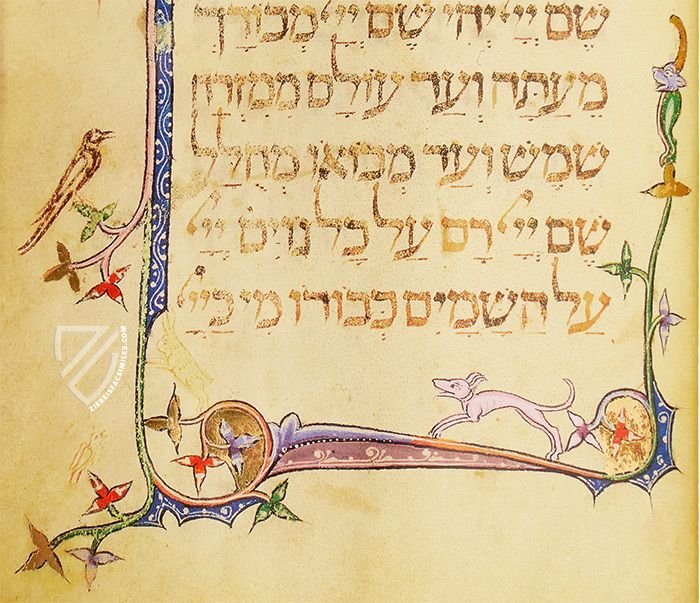 שֵׁם יְיָ יְהִי שֵׁם יְיָ מְבוֹרָךְ
מֵעַתָּה וְעַד עוֹלָם מִמִּזְרַח
שֶׁמֶשׁ וְעַד מְבוֹאוֹ מְהֻלָּל
שֵׁם יְיָ רָם עַל כָּל גּוֹיִם יְיָ
עַל הַשָּׁמַיִם כְּבוֹדוֹ מִי כַּיְיָ
ZIEREISFACSIMILES.COM